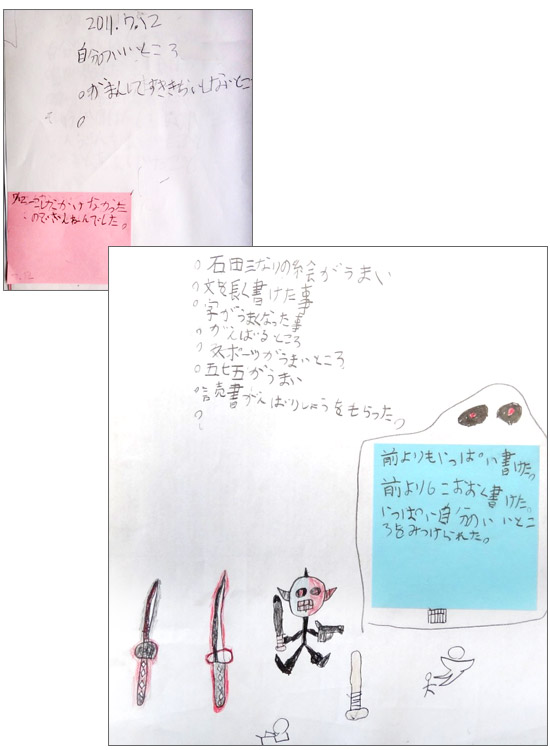 2011.7.12
自分のいいところ
。がまんしてすききらいしないとこ
。
一こしかかけなかった
のでざんねんでした。
。石田三なりの絵がうまい
。文を長く書けた事
。字がうまくなった事
。がんばるところ
。スポーツがうまいところ
。五七五がうまい
。書がんばりしょうをもらった。
。
前よりもいっぱい書けた。
前より6こおおく書けた。
いっぱい自分のいいとこ
ろをみつけられた。